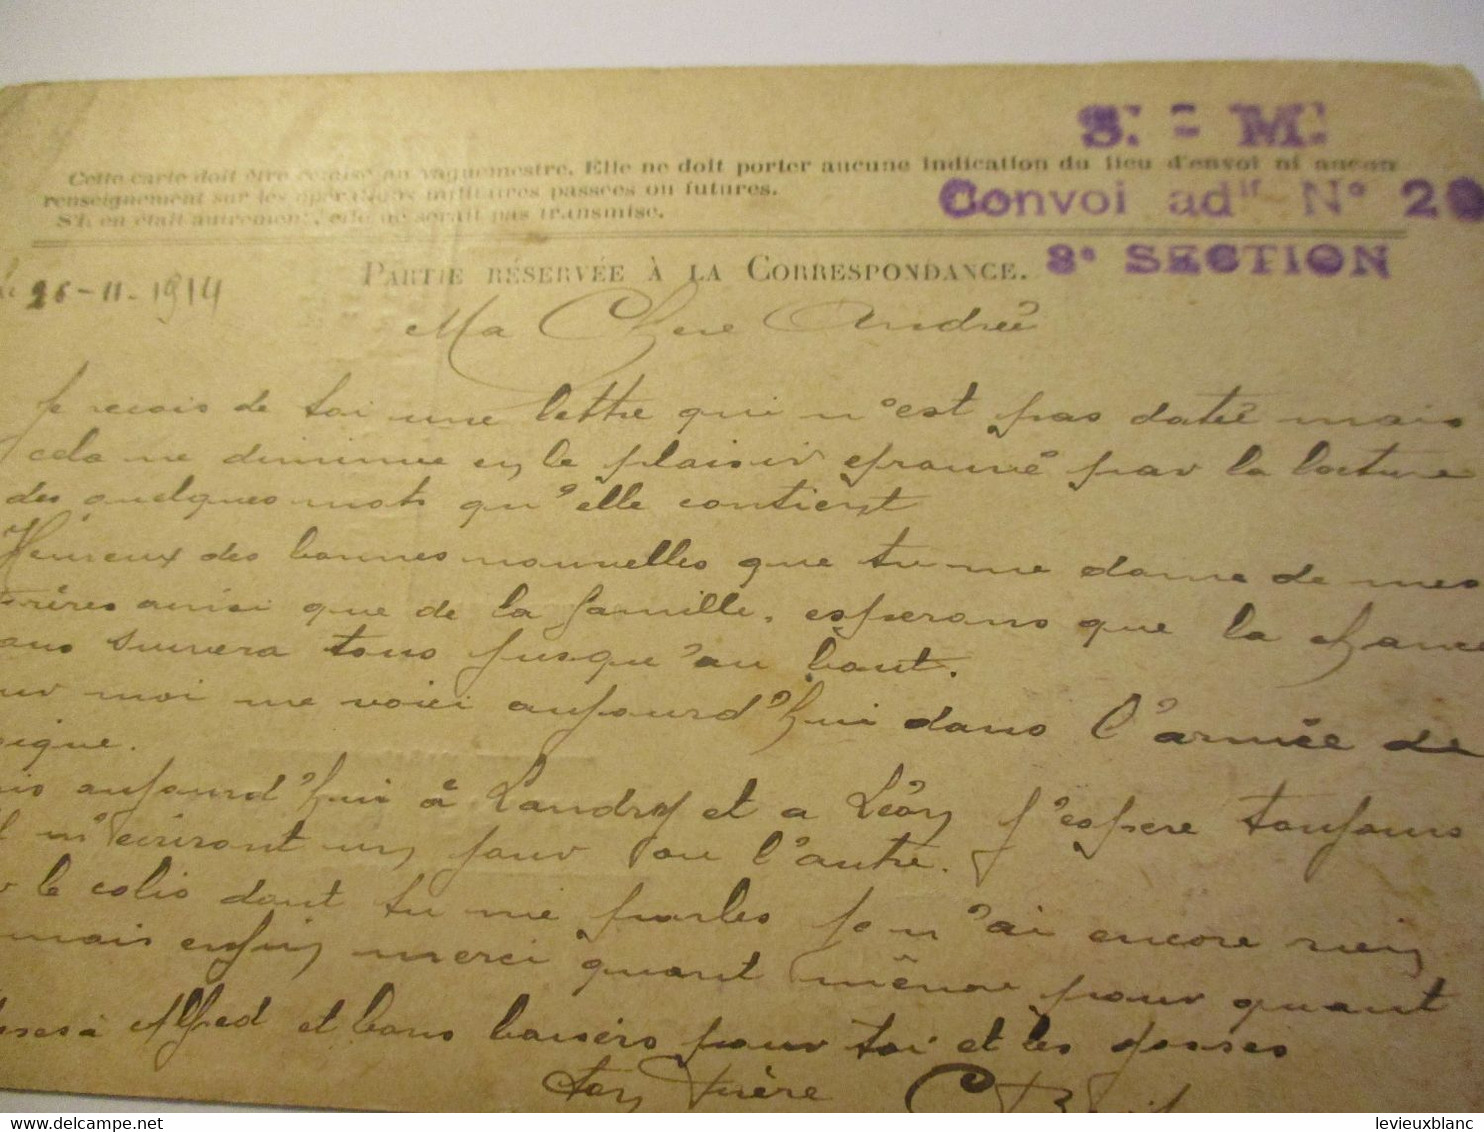 S. - M.
Cette carte doit être remise au vaguemestre. Elle ne doit porter aucune indication du lieu d'envoi ni aucun
renseignement sur les opérations militaires passées ou futures.
S'il en était autrement, elle ne serait pas transmise.
Convoi ad<sup>if</sup> N° 20
PARTIE RÉSERVÉE À LA CORRESPONDANCE.
3e SECTION
Le 26-11-1914
Ma Chere Andrée
Je recois de toi une lettre qui n'est pas daté mais
cela ne diminue en le plaisir eprouvé par la lecture
des quelques mots qu'elle contient
Heureux des bonnes nouvelles que tu me donne de mes
frères ainsi que de la famille. esperons que la chance
suivera tous jusqu'au bout.
moi me voici aujourd'hui dans l'armée de
aujourd'hui à Landry et a Léon j'espere toujours
m'ecriront un jour ou l'autre.
le colis dont tu me parles je n'ai encore rien
mais enfin merci quant même pour quant
à Alfred et bons baisers pour toi et les gosses
Ton Frère
levieuxblanc
delcampe.net